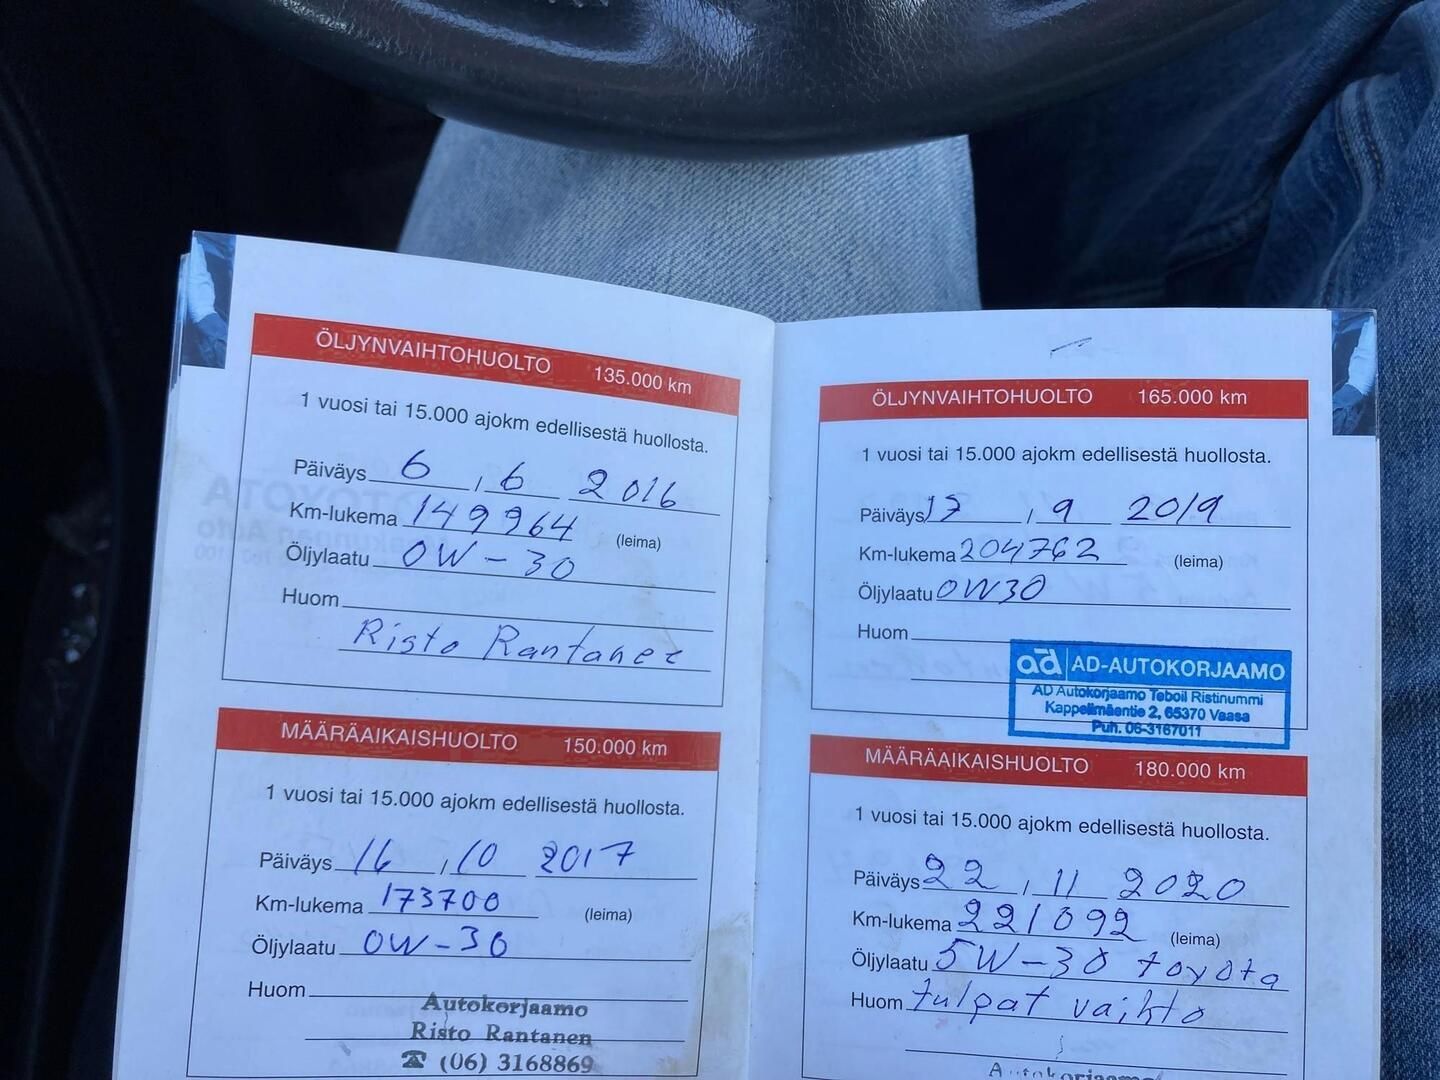 ÖLJYNVAIHTOHUOLTO 135.000 km
1 vuosi tai 15.000 ajokm edellisestä huollosta.
Päiväys 6 , 6 2016
Km-lukema 149964 (leima)
Öljylaatu 0W-30
Huom
Risto Rantanen
MÄÄRÄAIKAISHUOLTO 150.000 km
1 vuosi tai 15.000 ajokm edellisestä huollosta.
Päiväys 16 , 10 2017
Km-lukema 173700 (leima)
Öljylaatu 0W-30
Huom
Autokorjaamo
Risto Rantanen
☎ (06) 3168869
ÖLJYNVAIHTOHUOLTO 165.000 km
1 vuosi tai 15.000 ajokm edellisestä huollosta.
Päiväys 17 , 9 2019
Km-lukema 204762 (leima)
Öljylaatu 0W30
Huom
ad AD-AUTOKORJAAMO
AD Autokorjaamo Teboil Ristinummi
Kappelimäentie 2, 65370 Vaasa
Puh. 06-3167011
MÄÄRÄAIKAISHUOLTO 180.000 km
1 vuosi tai 15.000 ajokm edellisestä huollosta.
Päiväys 22 , 11 2020
Km-lukema 221092 (leima)
Öljylaatu 5W-30 toyota
Huom tulpat vaihto
Autokorjaamo